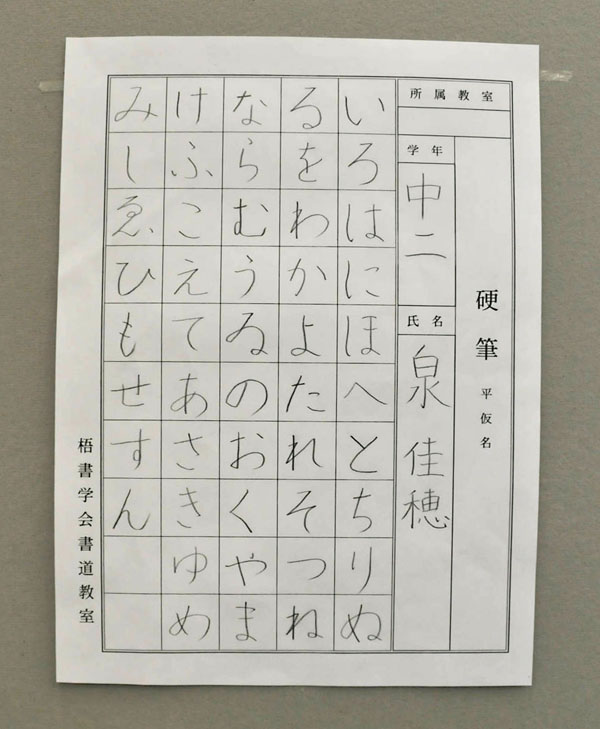 硬筆 平仮名
所属教室
学年
中二
氏名
泉 佳穂
いろはにほへとちりぬ
るをわかよたれそつね
ならむうゐのおくやま
けふこえてあさきゆめ
みしゑひもせすん
梧書学会書道教室